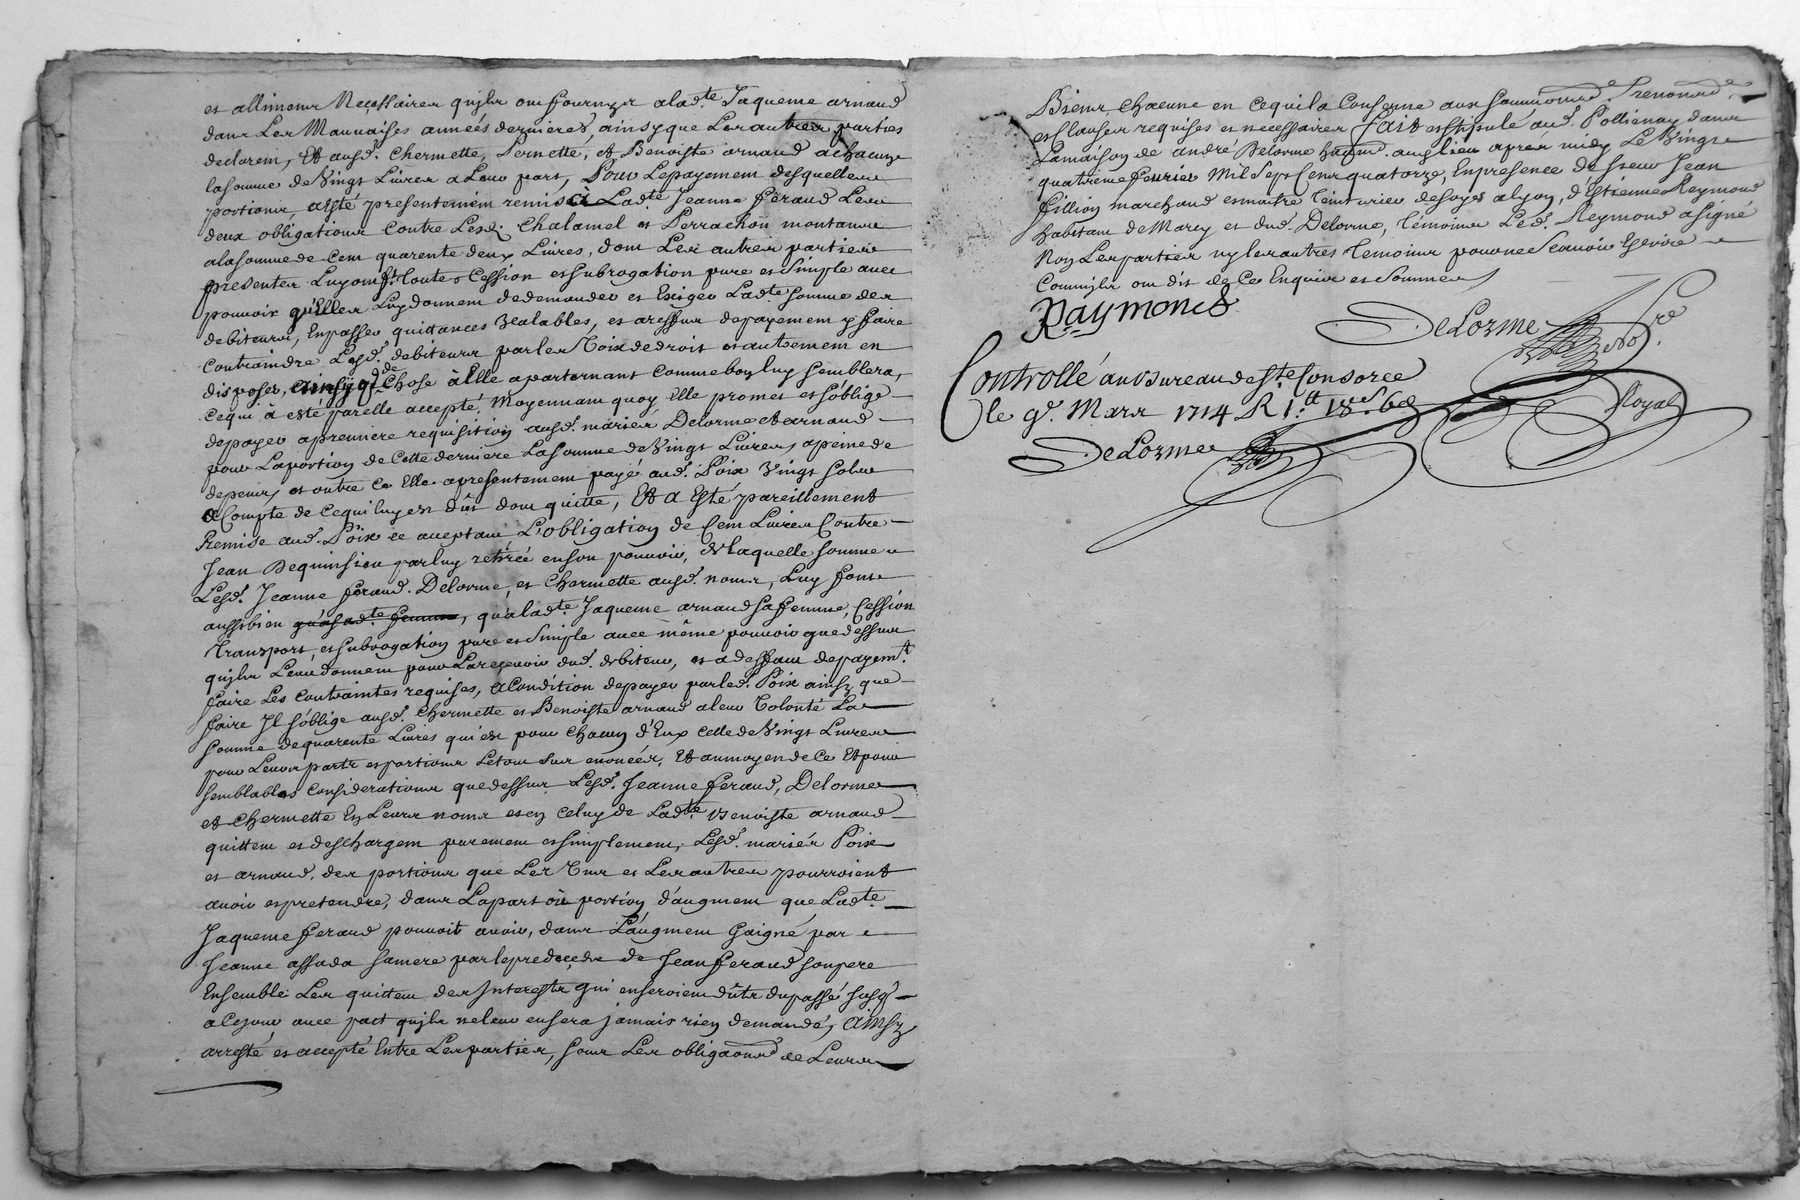 et alliments Necessaires qu'ils ont fournys a lad.te Jaqueme arnaud
dans Les Mauvaises années dernieres, ainsy que Les autres parties
declarent, Et ausd. Chermette, Pernette, et Benoiste arnaud a chacune
la somme de Vingt Livres a Leur part, Pour Le payement desquelles
portions, a esté presentement remis à Lad.te Jeanne féraud Les
deux obligations contre Lesd. Chalamel et Perrachon montants
a la somme de Cent quarente deux Livres, dont Les autres parties
presentes Luy ont f.t toutes Cession et subrogation pure et simple avec
pouvoir qu'Elles Luy donnent de demander et Exiger Lad.te somme des
debiteurs, En passer quittances Vealables, et a reffus de payement y faire
Contraindre Lesd. debiteurs par les Voix de droit et autrement en
disposer, ainsy q. de Chose à Elle apartenant comme bon luy semblera,
Ce qui à esté par elle accepté. Moyennant quoy elle promet et s'oblige
de payer a premiere requisition ausd. mariés Delorme et arnaud
pour La portion de Cette derniere La somme de Vingt Livres, a peine de
depens, et outre Ce Elle a presentement payé aud. Poix Vingt sols
a Compte de ce qui luy est dûs dont quitte, Et a Esté pareillement
Remise aud. Poix ce aceptant L'obligation de Cent Livres Contre
Jean Dequinsion par luy retirée en son pouvoir, de laquelle somme
Lesd. Jeanne feraud. Delorme, et Chermette ausd. noms, Luy font
aussi bien qu'a sad.te femme, qu'a lad.te Jaqueme arnaud sa femme, Cession
transport, et subrogation pure et simple avec même pouvoir que dessus
qu'ils Leur donnent pour La recevoir dud. debiteur, et a deffaut de payem.t
faire Les contraintes requises, a Condition de payer par led. Poix ainsy que
faire Il s'oblige ausd. Chermette et Benoiste arnaud a leur Volonté La
somme de quarente Livres qui est pour Chacun d'Eux celle de Vingt Livres
pour Leurs parts et portions Letout sus enoncés, Et au moyen de Ce Et pour
semblables Considerations que dessus Lesd. Jeanne feraud, Delorme
et Chermette En Leurs noms et en Celuy de Lad.te Benoiste arnaud
quittent et deschargent purement et simplement, Lesd. mariés Poix
et arnaud, des portions que Les Uns et Les autres pourroient
avoir et pretendre, dans La part où portion d'augment que Lad.te
Jaqueme feraud pouvoit avoir, dans L'augment Gaigné par
Jeanne assada sa mere par le predecedes de Jean feraud son pere
Ensemble Les quittent des Interests qui en seroient dûts du passé jusq'
a Ce jour avec pact qu'ils ne leur en sera jamais rien demandé, Ainsy
arresté et accepté Entre Les parties, sous Les obligaons de Leurs
Biens chacune en Ce qui La Conserne aux soummons. renonons.
et Clauses requises et necessaires fait et stipulé aud. Pollienay dans
La maison de andré Delorme habit. au lieu apres midy Le Vingt
quatrieme feurier Mil Sept Cens quatorze, En presence de sieur Jean
fillion marchand et maitre Teinturier de soyes a lyon, d'Estienne Reymond
habitant de Marcy et dud. Delorme, témoins Led. Reymond a signé
Non Les parties ny les autres temoins pour ne scavoir Escrire
Comm'ils ont dit de Ce Enquis et sommés
Raymond
DeLorme No.re
Royal
Controllé au bureau de S.te Consorce
le 9.e Mars 1714 R 1.tt 18.s 6.d
DeLorme